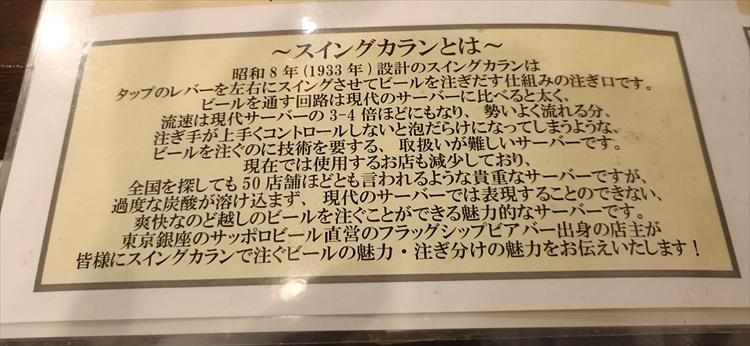 ～スイングカランとは～
昭和8年(1933年)設計のスイングカランは
タップのレバーを左右にスイングさせてビールを注ぎだす仕組みの注ぎ口です。
ビールを通す回路は現代のサーバーに比べると太く、
流速は現代サーバーの3-4倍ほどにもなり、勢いよく流れる分、
注ぎ手が上手くコントロールしないと泡だらけになってしまうような、
ビールを注ぐのに技術を要する、取扱いが難しいサーバーです。
現在では使用するお店も減少しており、
全国を探しても50店舗ほどとも言われるような貴重なサーバーですが、
過度な炭酸が溶け込まず、現代のサーバーでは表現することのできない、
爽快なのど越しのビールを注ぐことができる魅力的なサーバーです。
東京銀座のサッポロビール直営のフラッグシップビアバー出身の店主が
皆様にスイングカランで注ぐビールの魅力・注ぎ分けの魅力をお伝えいたします！